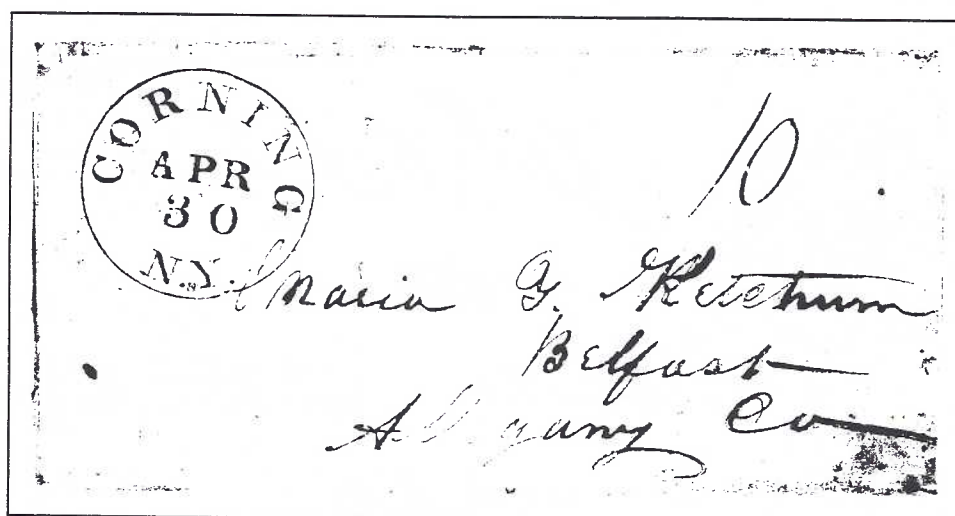 CORNING
APR
30
N.Y.
10
Maria G. Ketchum
Belfast
Allegany Co